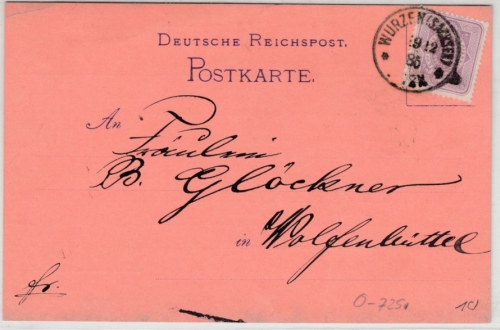 DEUTSCHE REICHSPOST.
POSTKARTE.
WURZEN (SACHSEN)
19 12
86
An
Fräulein
B. Glöckner
in Wolfenbüttel
fr.
10